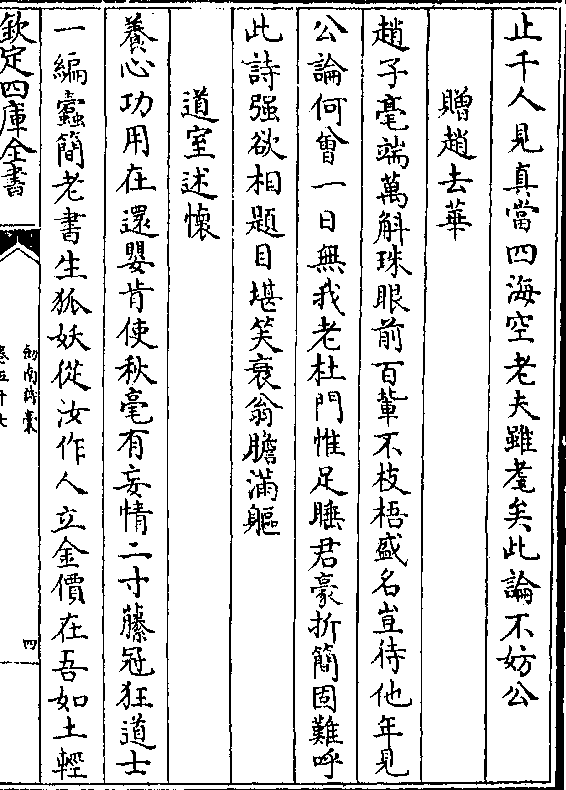 止千人見真當四海空老夫雖耄矣此論不妨公
贈趙去華
趙子毫端萬斛珠眼前百輩不枝梧盛名豈待他年見
公論何曾一日無我老杜門惟足睡君豪折簡固難呼
此詩强欲相題目堪笑衰翁膽滿軀
道室述懷
養心功用在還嬰肯使秋毫有妄情二寸藤冠狂道士
一編蠹簡老書生狐妖從汝作人立金價在吾如土輕
欽定四庫全書
劍南詩稾
卷五十七
四